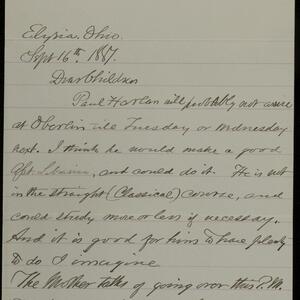 Elyria, Ohio.
Sept 16th 1887.
Dear Children
Paul Harlan will probably not arrive
at Oberlin till Tuesday or Wednesday
next. I think he would make a good
and could do it. He is not
in the straight (Classical) course, and
could study more or less if necessary.
And it is good for him to have plenty
to do I imagine
The Mother talks of going over this P.M.